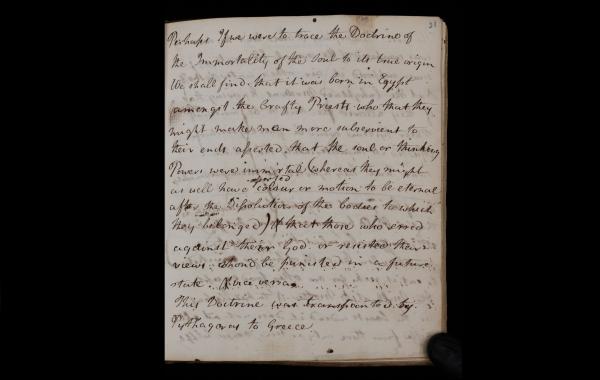 31
Perhaps If we were to trace the Doctrine of
the Immortality of the Soul to its true origin
We shall find that it was born in Egypt
amongst the Crafty Priests who that they
might make man more subservient to
their ends asserted that the soul or thinking
Powers were immortal (whereas they might
as well have asserted colour or motion to be eternal
after the Dissolution of the bodies to which
they belonged) & that those who erred
against their God or resisted their
views should be punished in a future
state. & vice versa
This Doctrine was transplanted by
Pythagoras to Greece